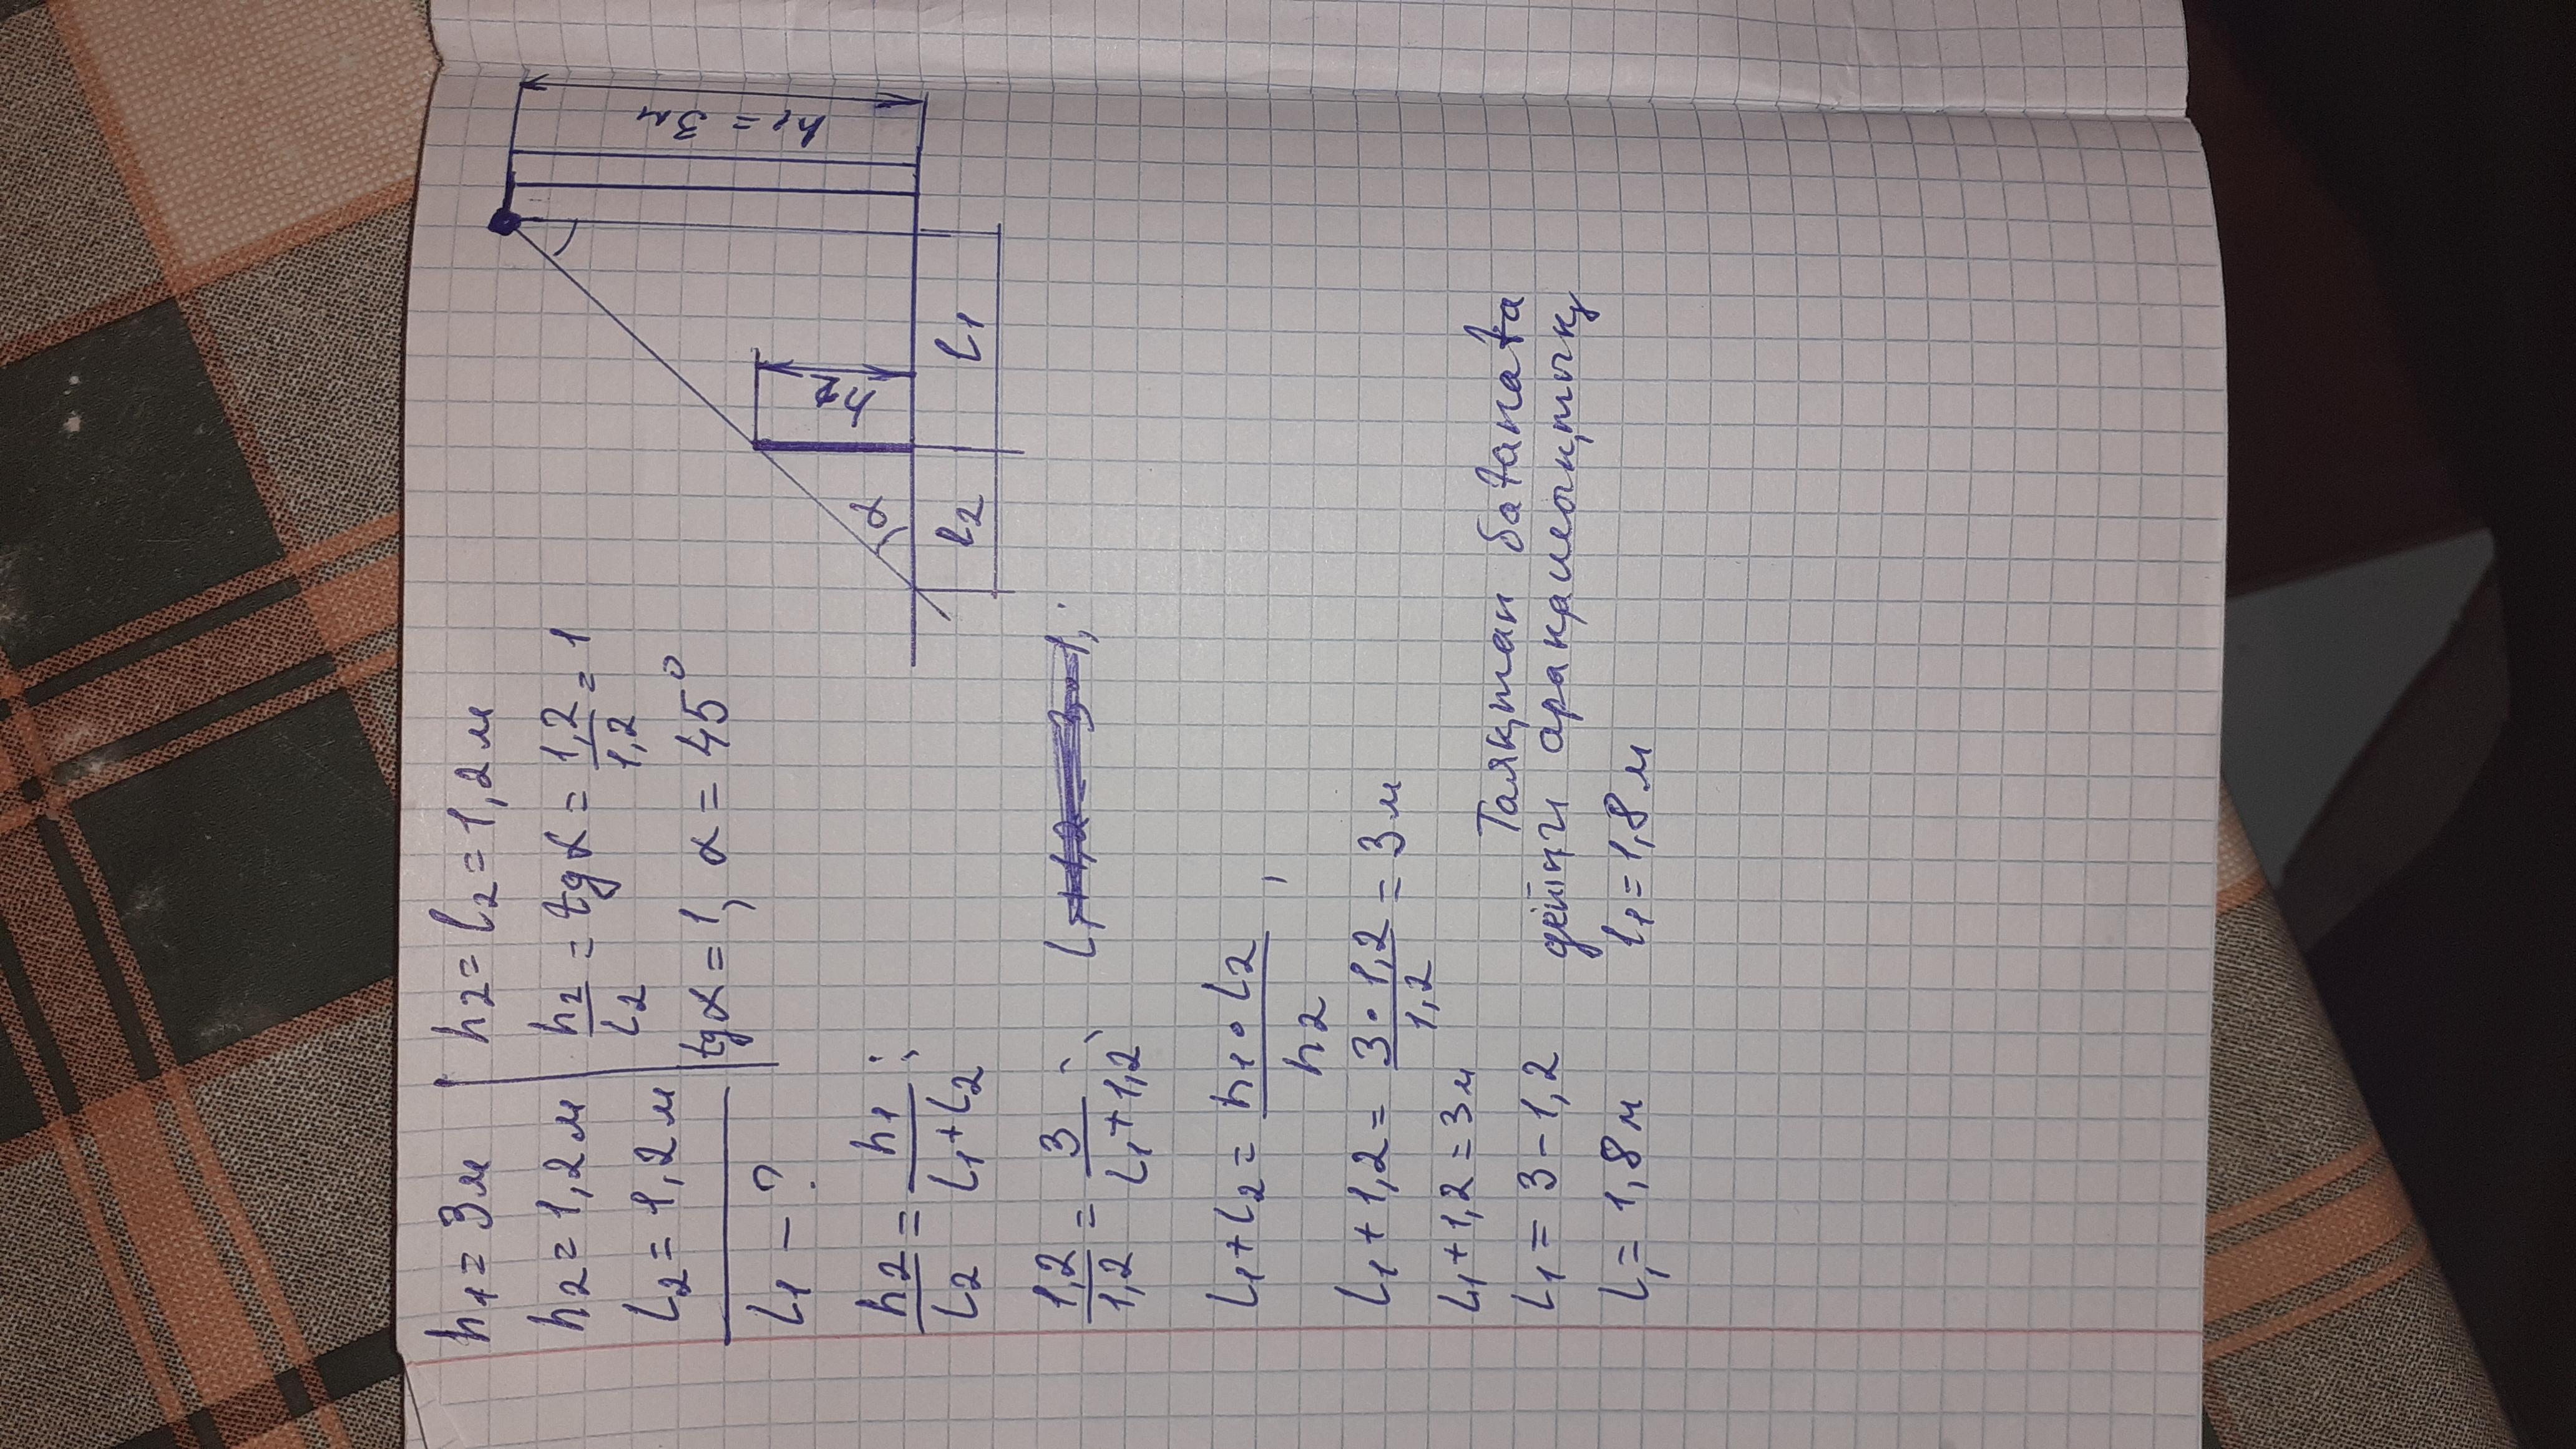 h₁ = 3м
h₂ = 1,2м
L₂ = 1,2м
L₁ – ?
h₂ = l₂ = 1,2м
h₂/L₂ = tgα = 1,2/1,2 = 1
tgα = 1, α = 45°
h₁ = 3м
h₂
α
l₂
L₁
h₂/L₂ = h₁/(L₁+L₂);
1,2/1,2 = 3/(L₁+1,2);
L₁+L₂ = h₁·L₂/h₂,
L₁+1,2 = 3·1,2/1,2 = 3м
L₁+1,2 = 3м
L₁ = 3–1,2
L₁ = 1,8м
Таяқтан баtанаtа
дейінгі арақашықтық
l₁ = 1,8м